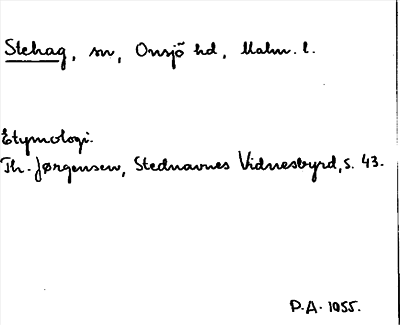 Stehag, sn, Onsjö hd, Malm. l.
Etymologi.
Th. Jørgensen, Stednavnes Vidnesbyrd, s. 43.
P.A. 1955.